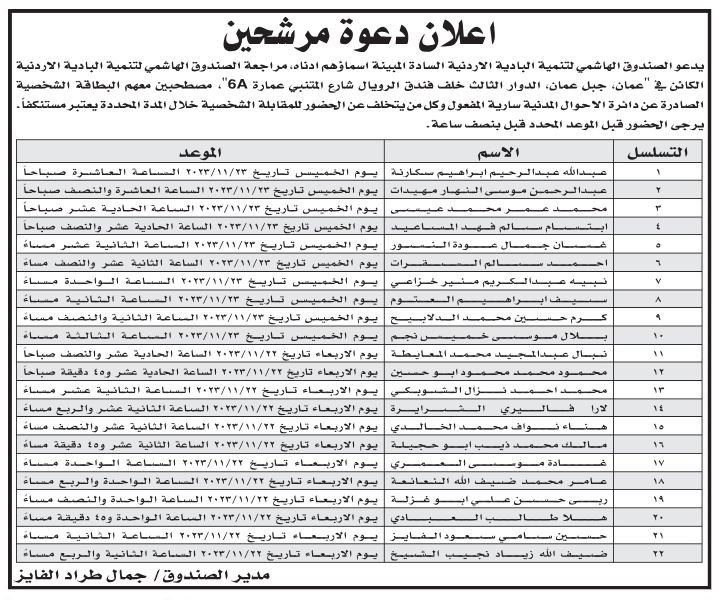 اعلان دعوة مرشحين
يدعو الصندوق الهاشمي لتنمية البادية الاردنية السادة المبينة اسماؤهم ادناه، مراجعة الصندوق الهاشمي لتنمية البادية الاردنية
الكائن في "عمان، جبل عمان، الدوار الثالث خلف فندق الرويال شارع المتنبي عمارة 6A"، مصطحبين معهم البطاقة الشخصية
الصادرة عن دائرة الاحوال المدنية سارية المفعول وكل من يتخلف عن الحضور للمقابلة الشخصية خلال المدة المحددة يعتبر مستنكفاً.
يرجى الحضور قبل الموعد المحدد قبل بنصف ساعة.
التسلسل الاسم الموعد
١ عبدالله عبدالرحيم ابراهيم سكارنة يوم الخميس تاريخ ٢٠٢٣/١١/٢٣ الساعة العاشرة صباحاً
٢ عبدالرحمن موسى النهار مهيدات يوم الخميس تاريخ ٢٠٢٣/١١/٢٣ الساعة العاشرة والنصف صباحاً
٣ محمد عمر محمد عيسى يوم الخميس تاريخ ٢٠٢٣/١١/٢٣ الساعة الحادية عشر صباحاً
٤ ابتسام سالم فهد المساعيد يوم الخميس تاريخ ٢٠٢٣/١١/٢٣ الساعة الحادية عشر والنصف صباحاً
٥ غسان جمال عودة النسور يوم الخميس تاريخ ٢٠٢٣/١١/٢٣ الساعة الثانية عشر مساءً
٦ احمد سالم السقرات يوم الخميس تاريخ ٢٠٢٣/١١/٢٣ الساعة الثانية عشر والنصف مساءً
٧ نبيه عبدالكريم منير خزاعي يوم الخميس تاريخ ٢٠٢٣/١١/٢٣ الساعة الواحدة مساءً
٨ سيف ابراهيم العتوم يوم الخميس تاريخ ٢٠٢٣/١١/٢٣ الساعة الثانية مساءً
٩ كرم حسين محمد الدلابيح يوم الخميس تاريخ ٢٠٢٣/١١/٢٣ الساعة الثانية والنصف مساءً
١٠ بلال موسى خميس نجم يوم الخميس تاريخ ٢٠٢٣/١١/٢٣ الساعة الثالثة مساءً
١١ نبال عبدالمجيد محمد المعايطة يوم الاربعاء تاريخ ٢٠٢٣/١١/٢٢ الساعة الحادية عشر والنصف صباحاً
١٢ محمود محمد محمود ابو حسين يوم الاربعاء تاريخ ٢٠٢٣/١١/٢٢ الساعة الحادية عشر و٤٥ دقيقة صباحاً
١٣ محمد احمد نزال الشوبكي يوم الاربعاء تاريخ ٢٠٢٣/١١/٢٢ الساعة الثانية عشر مساءً
١٤ لارا فاليري الشرايرة يوم الاربعاء تاريخ ٢٠٢٣/١١/٢٢ الساعة الثانية عشر والربع مساءً
١٥ هناء نواف محمد الخالدي يوم الاربعاء تاريخ ٢٠٢٣/١١/٢٢ الساعة الثانية عشر والنصف مساءً
١٦ مالك محمد ذيب ابو حجيلة يوم الاربعاء تاريخ ٢٠٢٣/١١/٢٢ الساعة الثانية عشر و٤٥ دقيقة مساءً
١٧ غادة موسى العمري يوم الاربعاء تاريخ ٢٠٢٣/١١/٢٢ الساعة الواحدة مساءً
١٨ عامر محمد ضيف الله النعانعة يوم الاربعاء تاريخ ٢٠٢٣/١١/٢٢ الساعة الواحدة والربع مساءً
١٩ ربى حسن علي ابو غزلة يوم الاربعاء تاريخ ٢٠٢٣/١١/٢٢ الساعة الواحدة والنصف مساءً
٢٠ هلا طالب العبادي يوم الاربعاء تاريخ ٢٠٢٣/١١/٢٢ الساعة الواحدة و٤٥ دقيقة مساءً
٢١ حسين سامي سعود الفايز يوم الاربعاء تاريخ ٢٠٢٣/١١/٢٢ الساعة الثانية مساءً
٢٢ ضيف الله زياد نجيب الشيخ يوم الاربعاء تاريخ ٢٠٢٣/١١/٢٢ الساعة الثانية والربع مساءً
مدير الصندوق/ جمال طراد الفايز